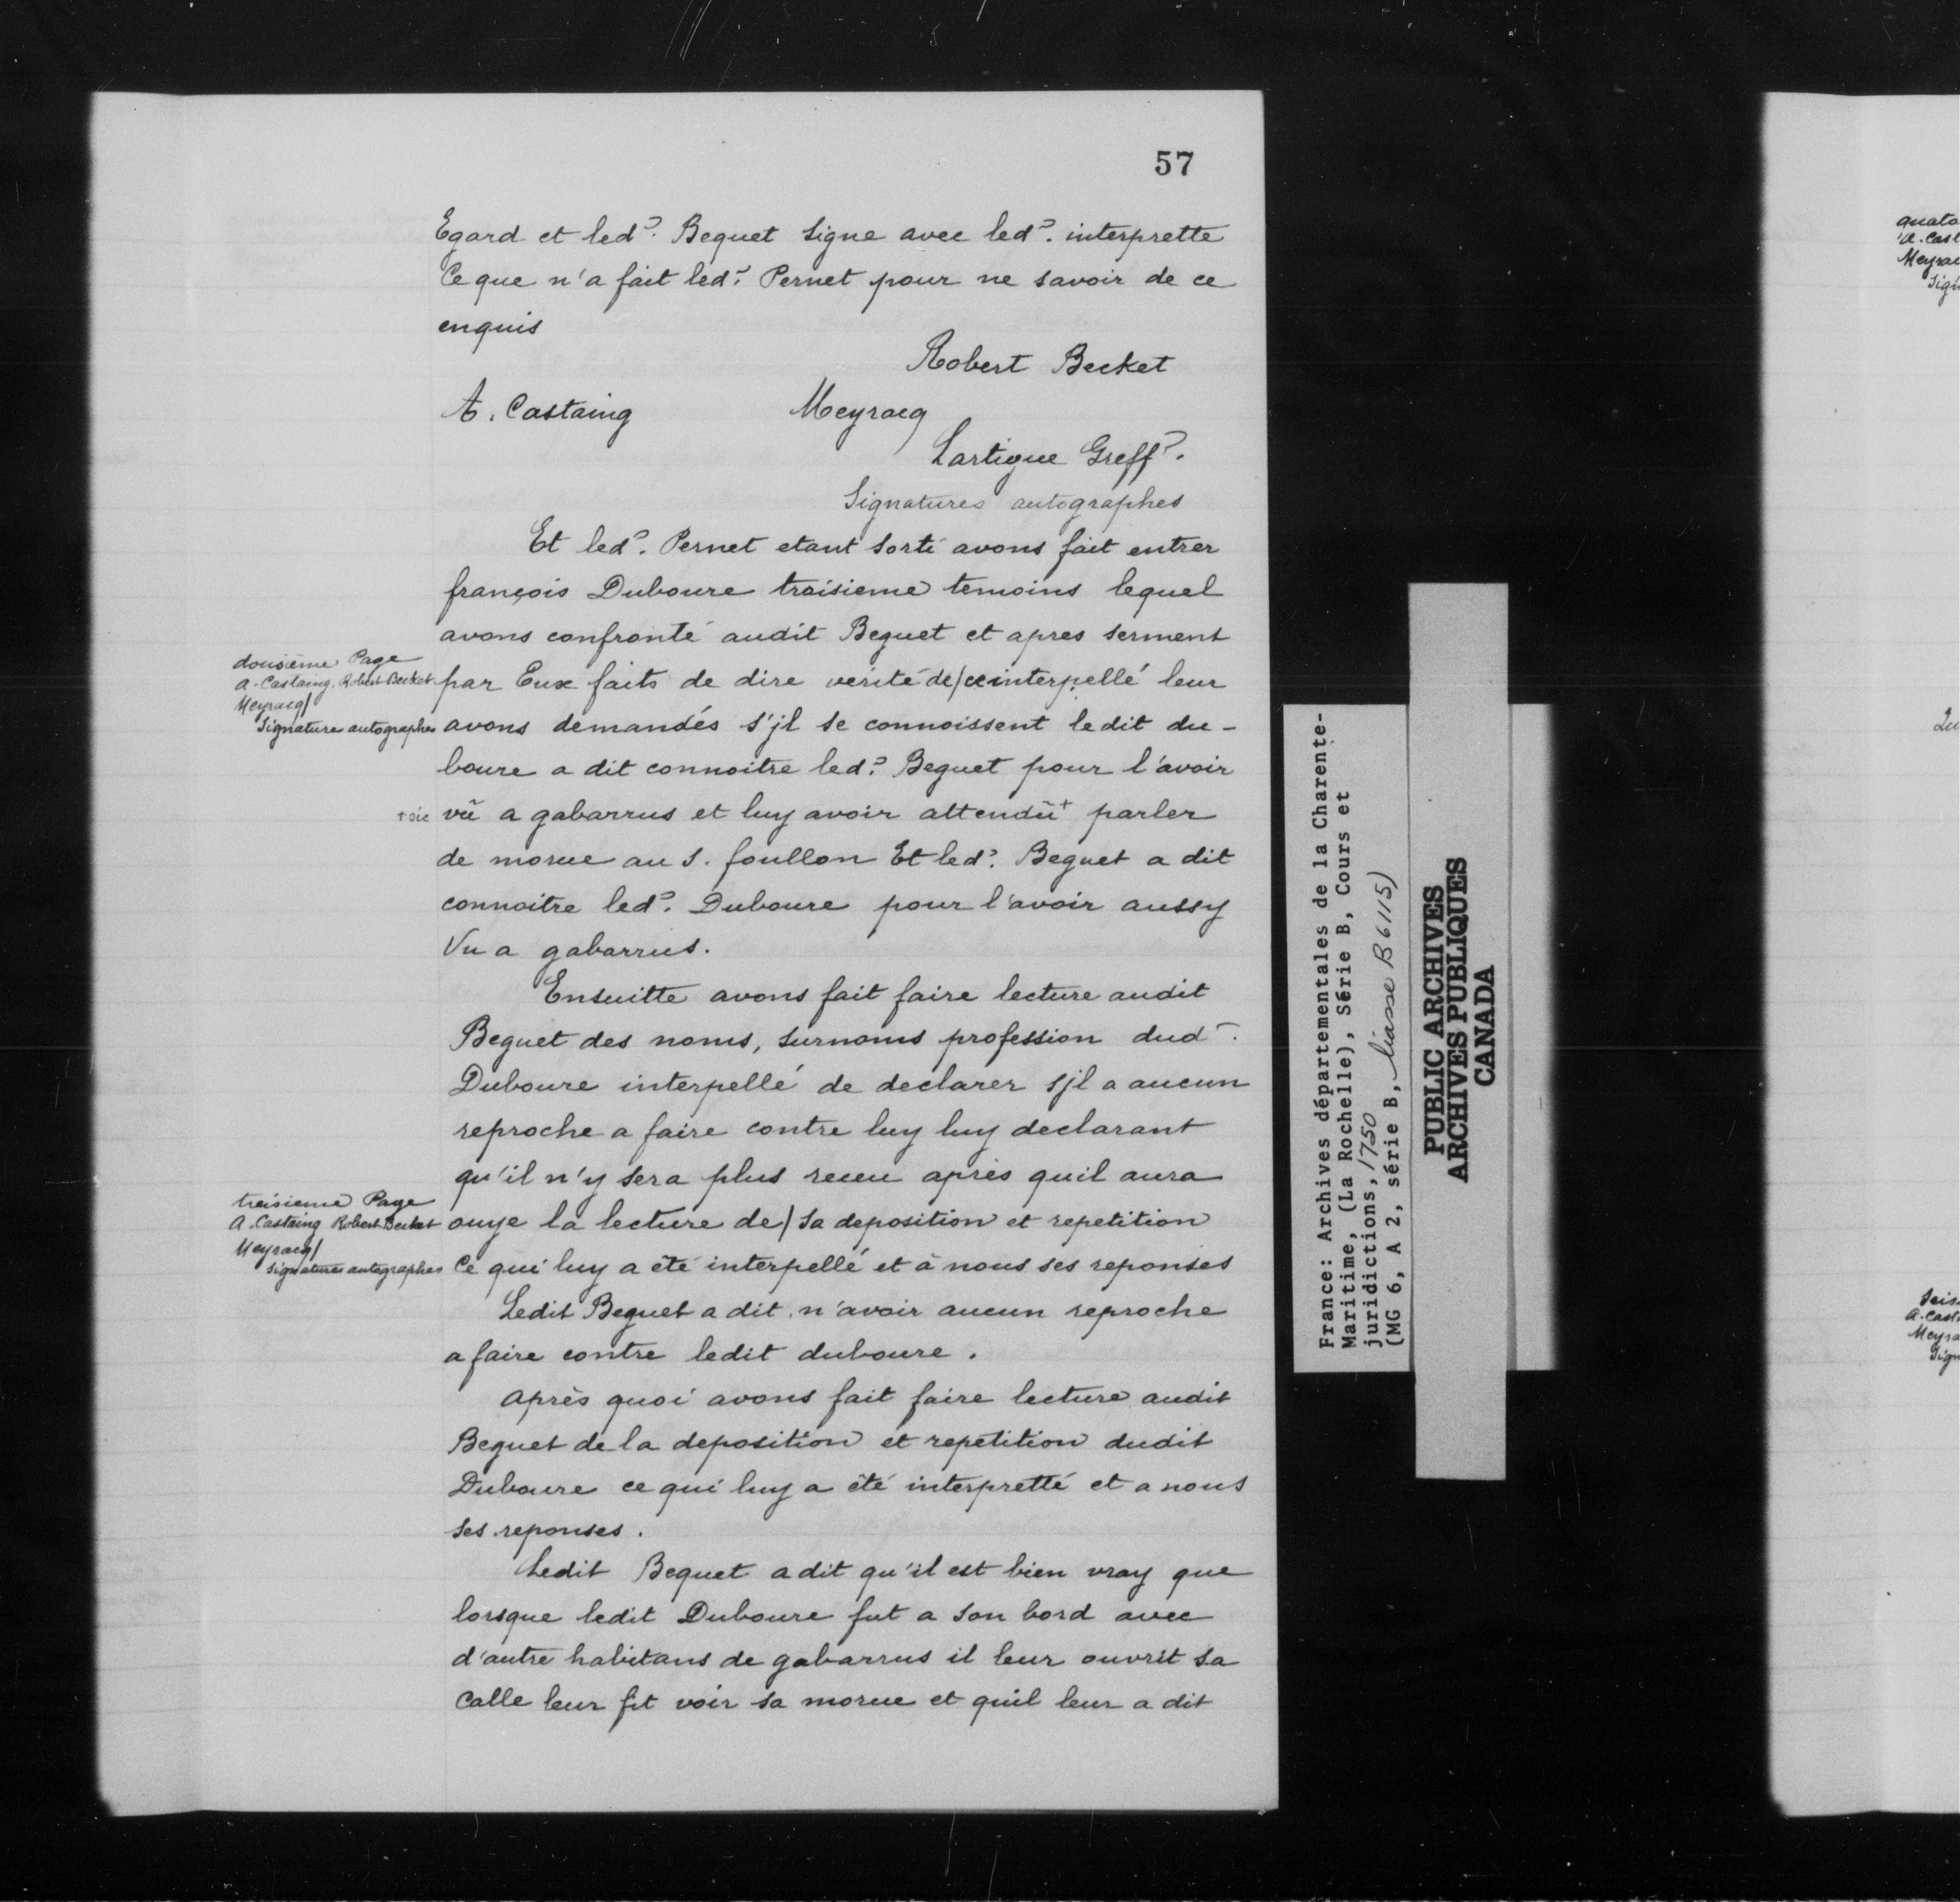 57
Egard et led?. Bequet signe avec led?. interprette
Ce que n'a fait led?. Pernet pour ne savoir de ce
enquis
Robert Becket
A. Castaing Meyracq
Lartigue Greff?.
Signatures autographes
Et led?. Pernet etant sorti avons fait entrer
françois Duboure troisieme temoins lequel
avons confronté audit Bequet et apres serment
douzième Page
A. Castaing, Robert Becket
Meyracq/
Signature autographes
par Eux faits de dire verité de/ce interpellé leur
avons demandés s'jl se connoissent ledit du-
boure a dit connoitre led?. Bequet pour l'avoir
+ sic
vû a gabarrus et luy avoir attendû+ parler
de morue au s. foullon Et led?. Bequet a dit
connoitre led?. Duboure pour l'avoir aussy
Vu a gabarrus.
Ensuitte avons fait faire lecture audit
Bequet des noms, surnoms profession dud?.
Duboure interpellé de declarer sjl a aucun
reproche a faire contre luy luy declarant
qu'il n'y sera plus receu après quil aura
treisieme Page
A. Castaing Robert Becket
Meyracq/
signatures autographes
ouye la lecture de/ sa deposition et repetition
Ce qui luy a été interpellé et à nous ses reponses
Ledit Bequet a dit n'avoir aucun reproche
a faire contre ledit duboure.
après quoi avons fait faire lecture audit
Bequet de la deposition et repetition dudit
Duboure ce qui luy a été interpretté et a nous
ses reponses.
Ledit Bequet a dit qu'il est bien vray que
lorsque ledit Duboure fut a son bord avec
d'autre habitans de gabarrus il leur ouvrit sa
Calle leur fit voir sa morue et quil leur a dit
France: Archives départementales de la Charente-
Maritime, (La Rochelle), Série B, Cours et
juridictions, 1750
(MG 6, A 2, série B, liasse B 6115)
PUBLIC ARCHIVES
ARCHIVES PUBLIQUES
CANADA
quato
A. Cast
Meyrac
Sign
A. Cast
Meyra
Sign